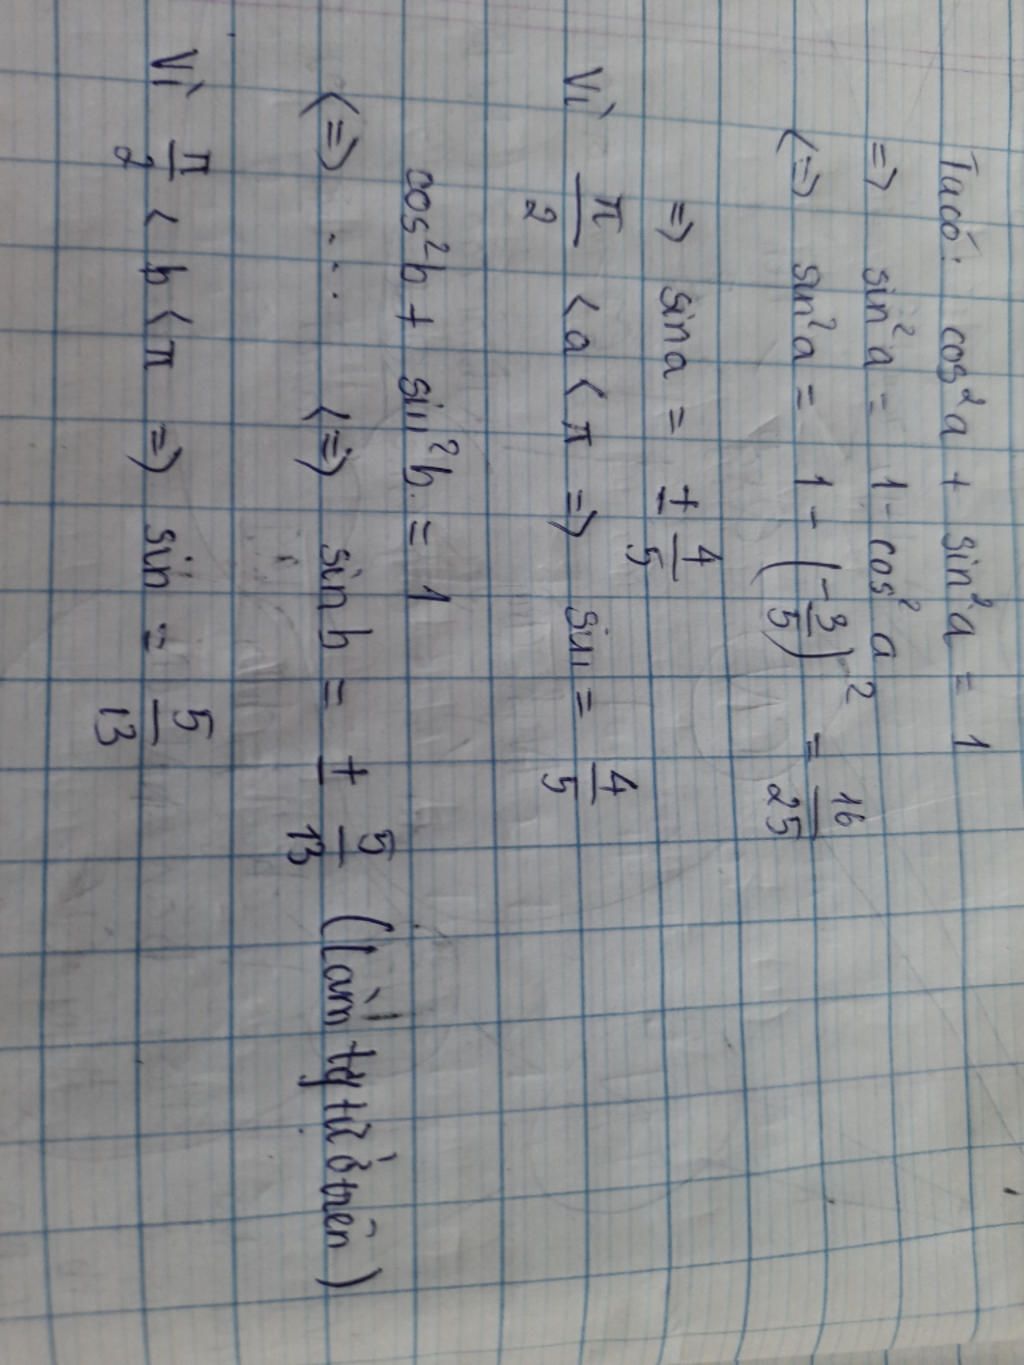 Ta có: cos²a + sin²a = 1
=> sin²a = 1 - cos²a
<=> sin²a = 1 - (-3/5)² = 16/25
=> sina = ± 4/5
Vì π/2 < a < π => sin = 4/5
cos²b + sin²b = 1
<=> ... <=> sin b = ± 5/13 (làm tự từ ở trên)
Vì π/2 < b < π => sin = 5/13